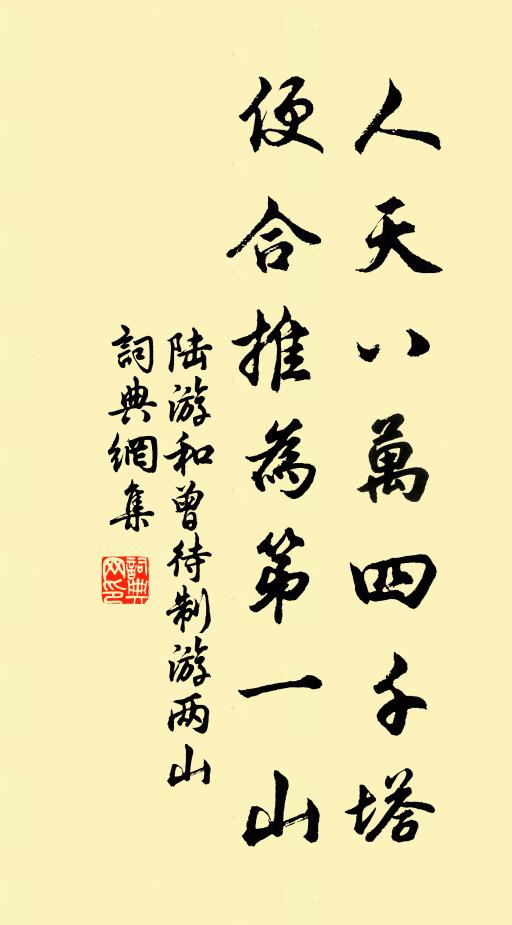 人天八萬四千塔
便合推為第一山
陆游和曾待制游两山
詞典網集
詞典
网印